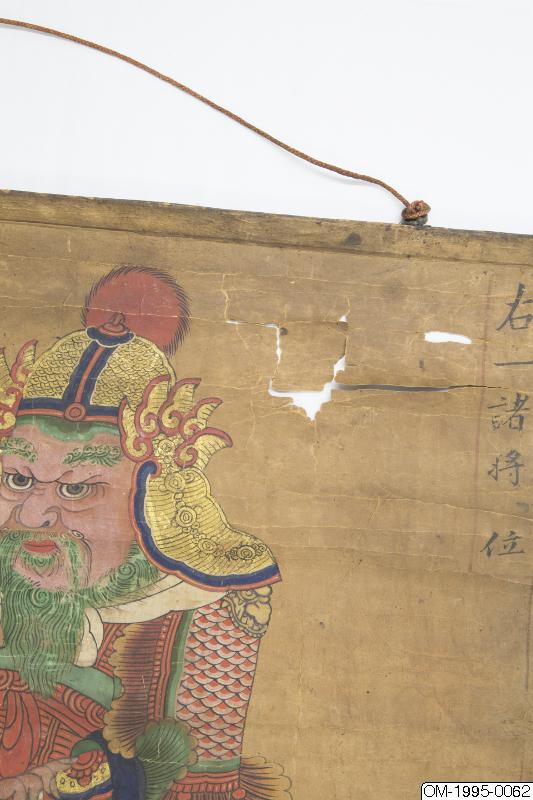 右一諸將、位
OM-1995-0062